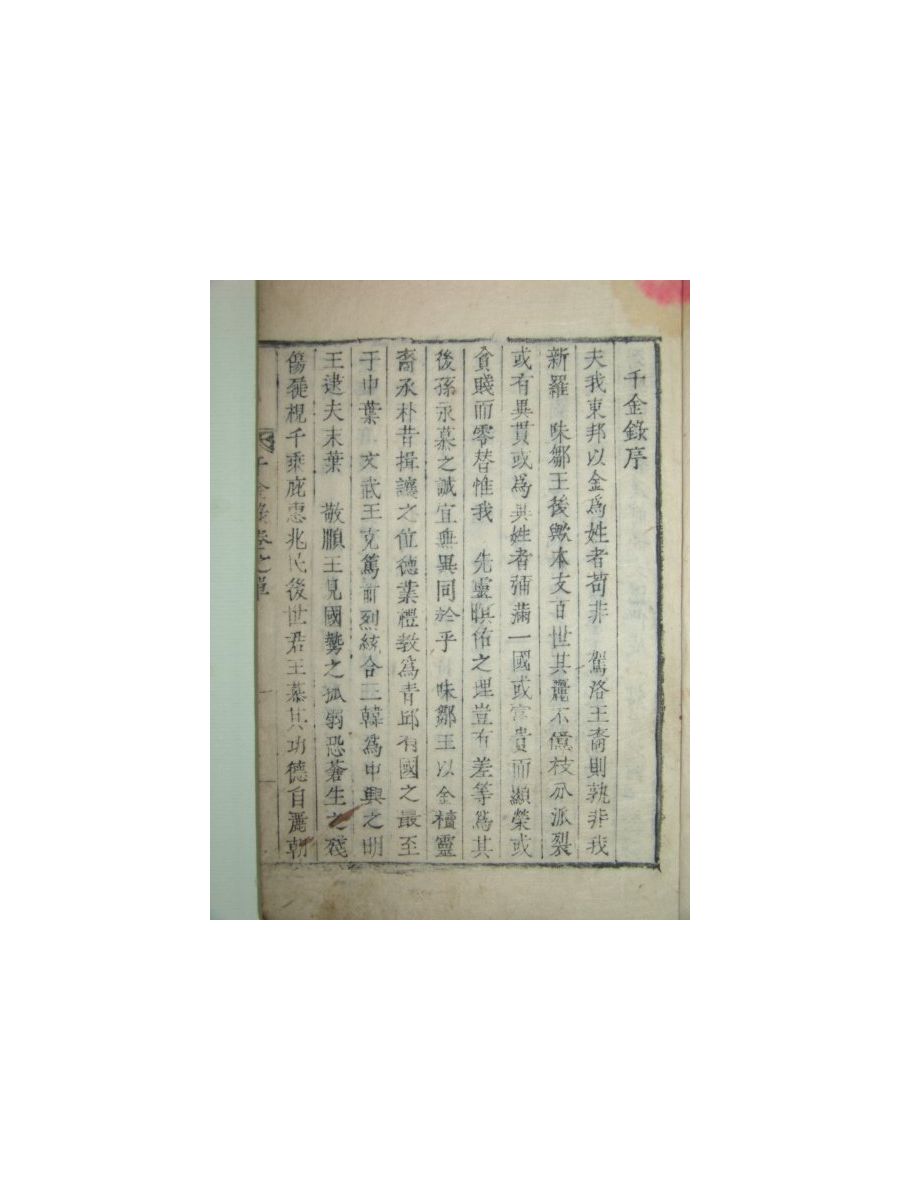 千金錄序
夫我東邦以金爲姓者苟非 駕洛王裔則孰非我
新羅 味鄒王後歟本支百世其麗不億枝分派裂
或有異貫或爲異姓者彌滿一國或富貴而顯榮或
貧賤而零替惟我 先靈暝佑之理豈有差等爲其
後孫永慕之誠宜無異同於乎 味鄒王以金樻靈
裔承朴昔揖讓之位德業禮敎爲靑邱有國之最至
于中葉 文武王克篤前烈統合三韓爲中興之明
王逮夫末葉 敬順王見國勢之孤弱恐蒼生之殘
傷蹝視千乘庇惠兆民後世君王慕其功德自麗朝
千金錄卷之單